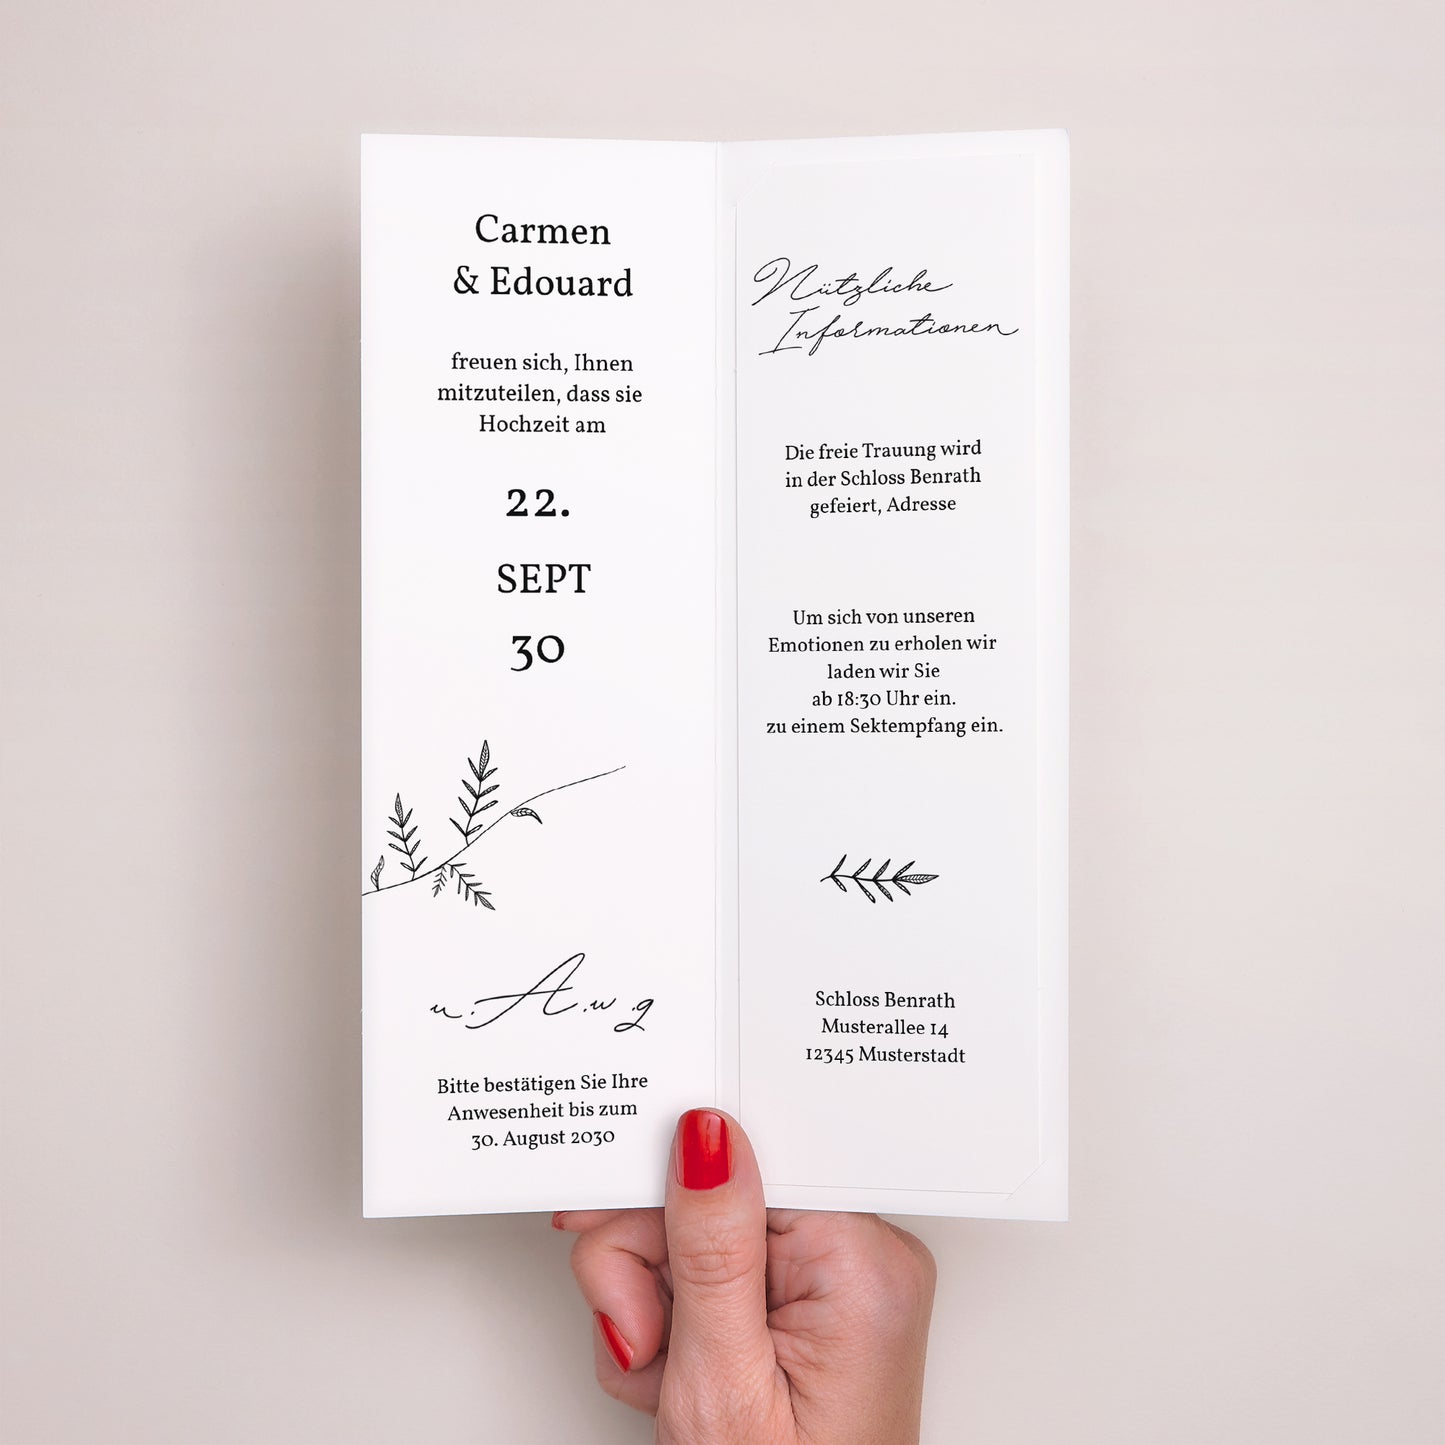 Carmen
& Edouard
freuen sich, Ihnen
mitzuteilen, dass sie
Hochzeit am
22.
SEPT
30
u.A.w.g
Bitte bestätigen Sie Ihre
Anwesenheit bis zum
30. August 2030
Nützliche
Informationen
Die freie Trauung wird
in der Schloss Benrath
gefeiert, Adresse
Um sich von unseren
Emotionen zu erholen wir
laden wir Sie
ab 18:30 Uhr ein.
zu einem Sektempfang ein.
Schloss Benrath
Musterallee 14
12345 Musterstadt